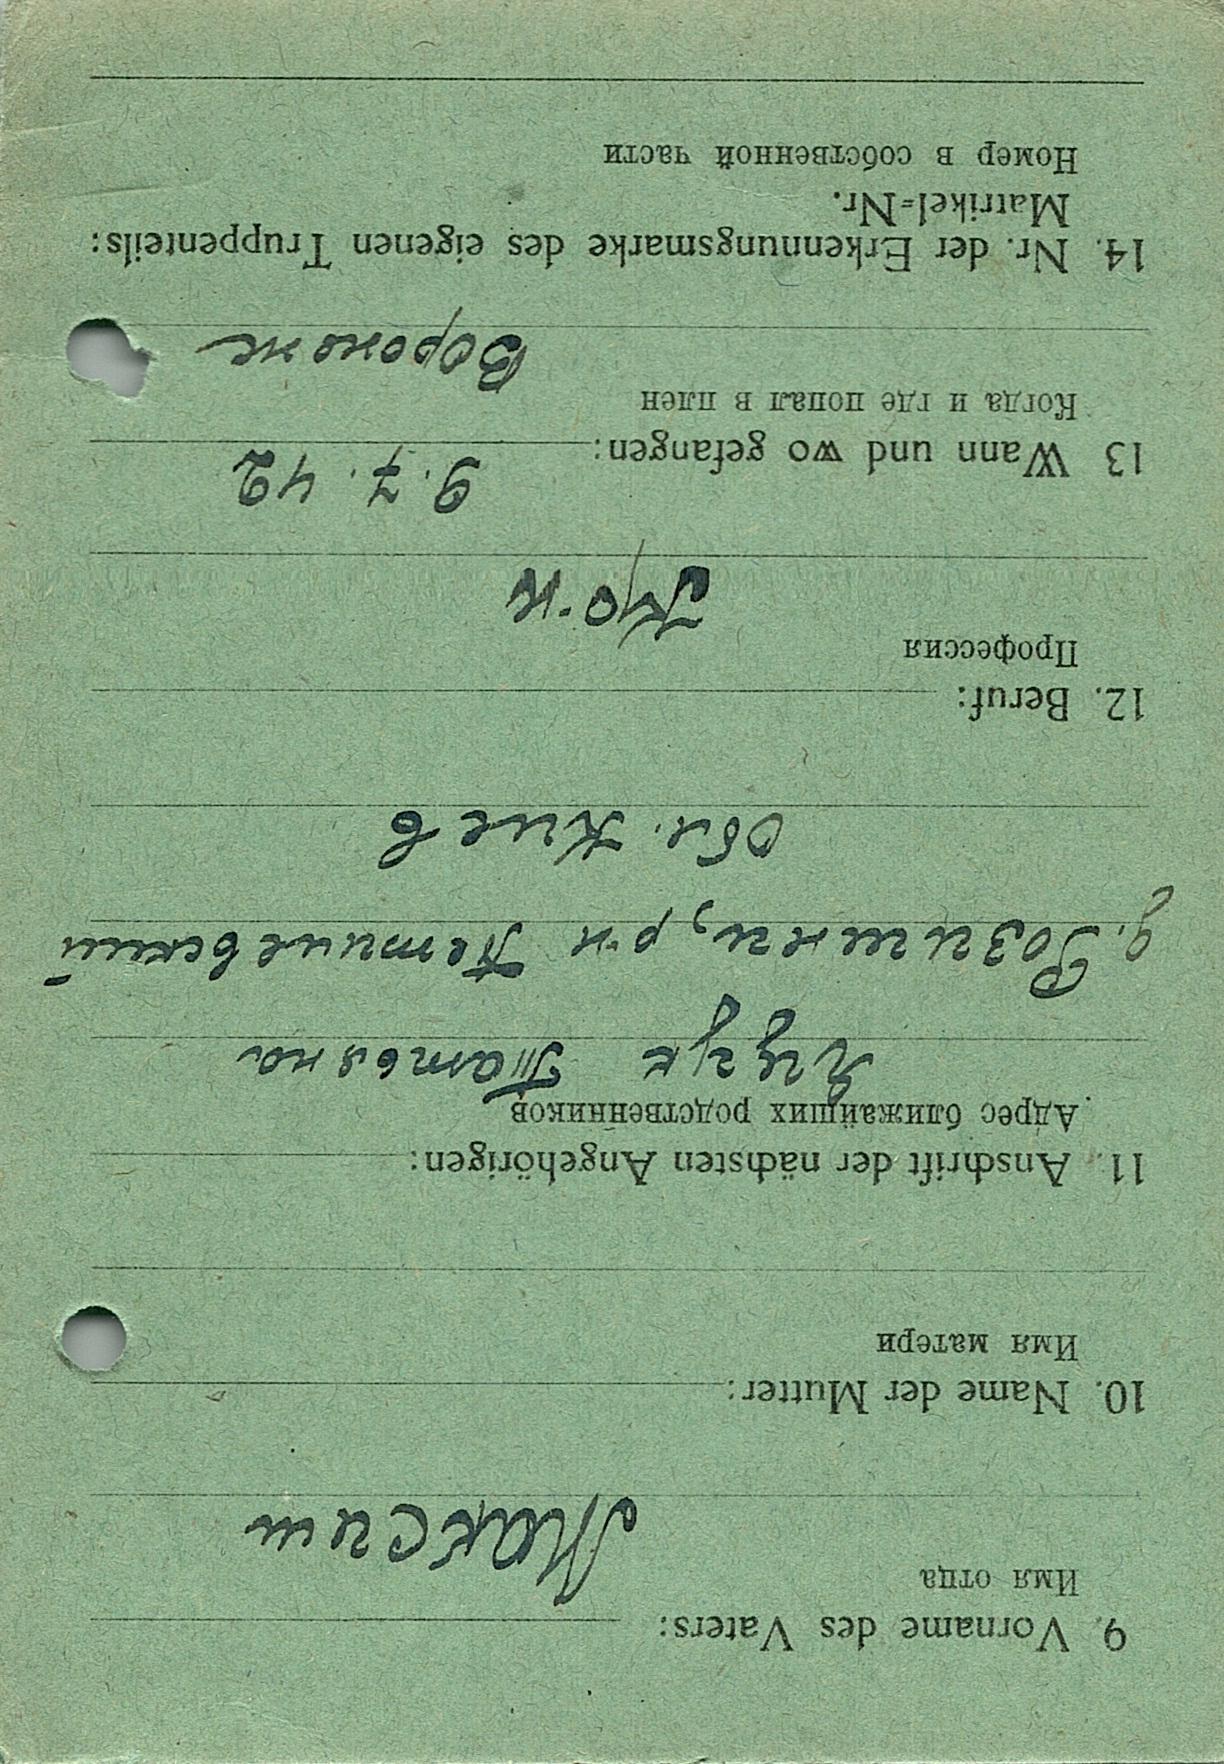 9. Vorname des Vaters:
Имя отца
Максим
10. Name der Mutter:
Имя матери
11. Anschrift der nächsten Angehörigen:
Адрес ближайших родственников
Татьяна
д. р-н
Обл. Киев
12. Beruf:
Профессия
Кр-н
13 Wann und wo gefangen:
9.7.42
Когда и где попал в плен
Воронеж
14. Nr. der Erkennungsmarke des eigenen Truppenteils:
Matrikel=Nr.
Номер в собственной части